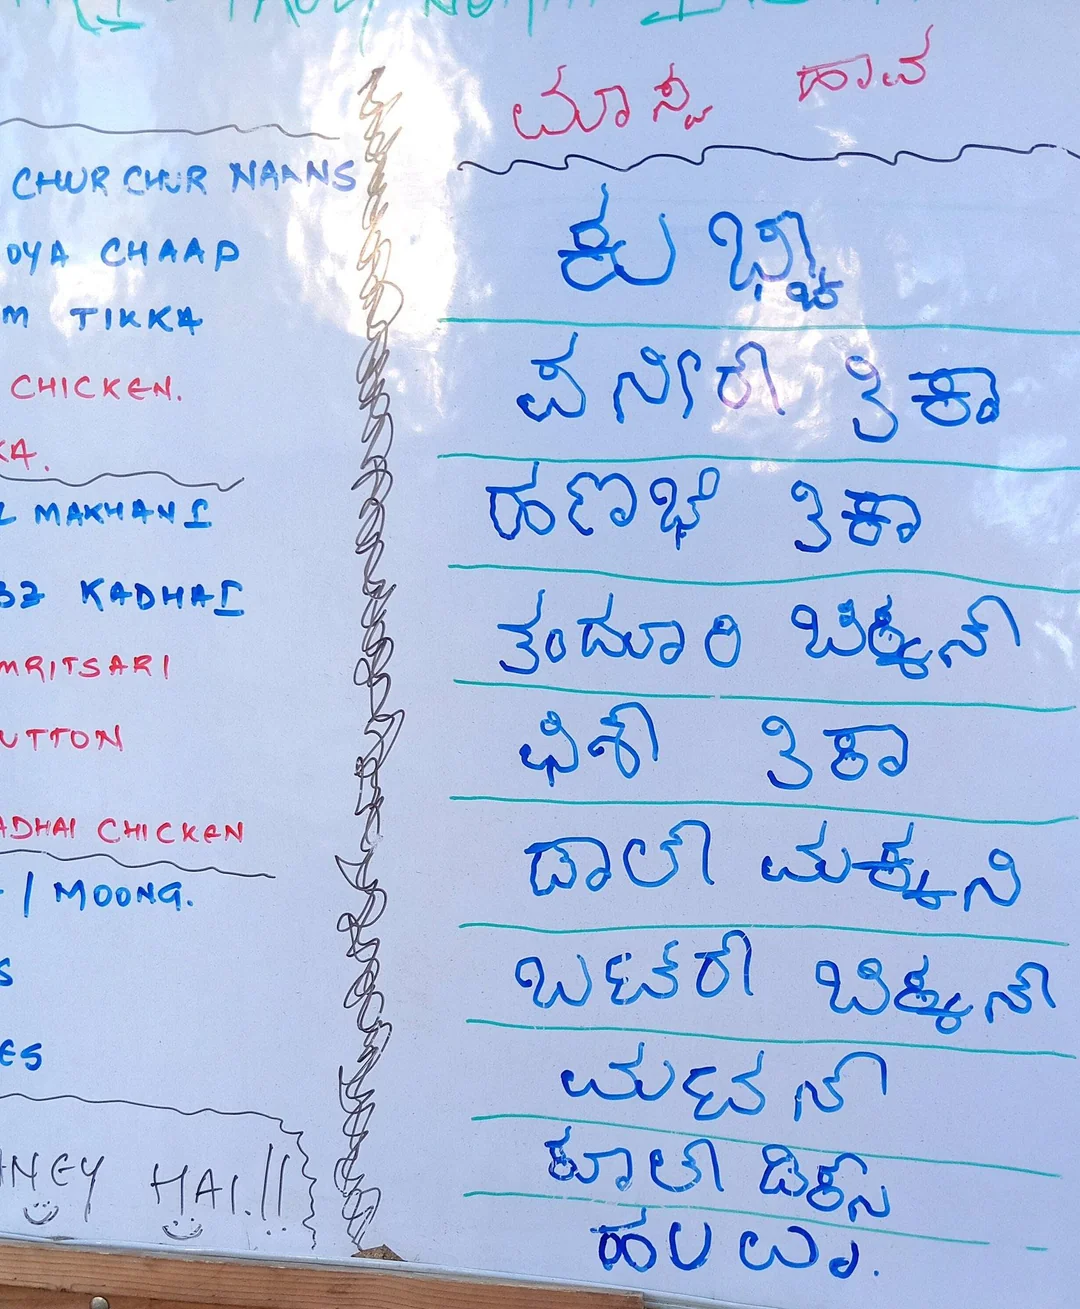 CHUR CHUR NAANS
OYA CHAAP
M TIKKA
CHICKEN.
KA.
L MAKHANI
BZ KADHAI
MRITSARI
UTTON
ADHAI CHICKEN
/ MOONG.
S
ES
NEY HAI.!!
ಪನೀರ್ ತಿಕಾ
ತಂದೂರಿ ಚಿಕ್ಕನ್
ಫಿಶ್ ತಿಕಾ
ದಾಲ್ ಮಕ್ಕನಿ
ಬಟರ್ ಚಿಕ್ಕನ್
ಮಟನ್
ಕೂಲ್ ಡಿಕ್ಸ್
ಹಲವಾ.